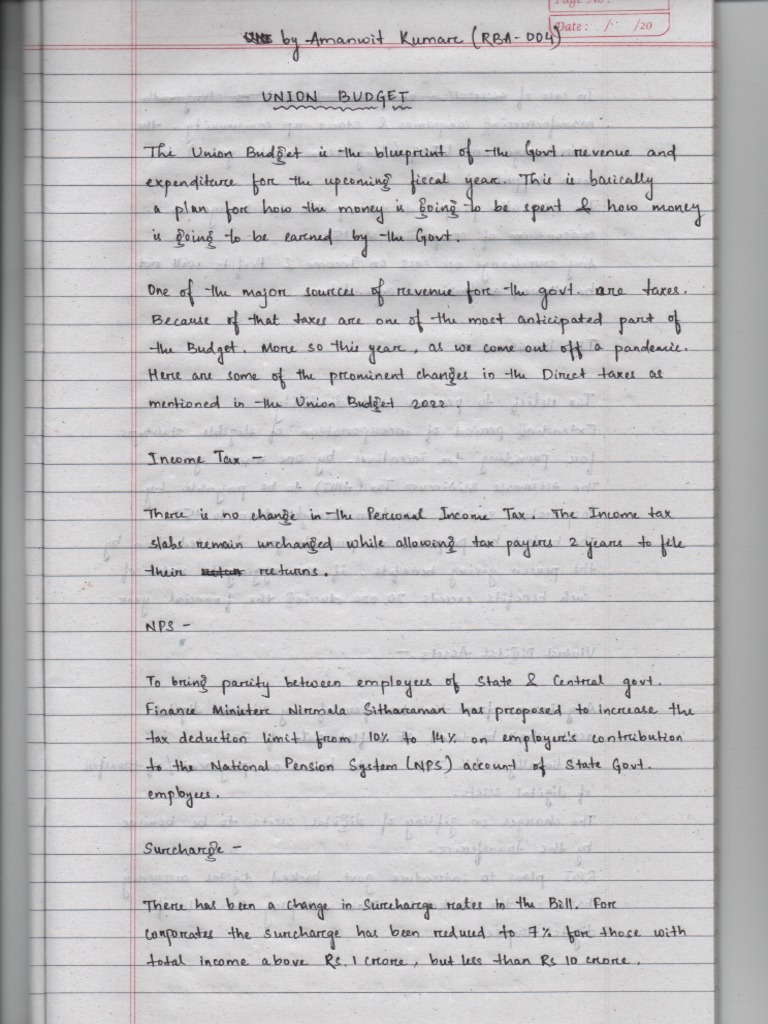 Page No :
Date : / /20
by Amanwit Kumar (RBA-004)
UNION BUDGET
The Union Budget is the blueprint of the Govt. revenue and
expenditure for the upcoming fiscal year. This is basically
a plan for how the money is going to be spent & how money
is going to be earned by the Govt.
One of the major sources of revenue for the govt. are taxes.
Because of that taxes are one of the most anticipated part of
the Budget. More so this year, as we come out off a pandemic.
Here are some of the prominent changes in the Direct taxes as
mentioned in the Union Budget 2022
Income Tax -
There is no change in the Personal Income Tax. The Income tax
slabs remain unchanged while allowing tax payers 2 years to file
their returns.
NPS -
To bring parity between employees of State & Central govt.
Finance Minister Nirmala Sitharaman has proposed to increase the
tax deduction limit from 10% to 14% on employer's contribution
to the National Pension System (NPS) account of State Govt.
employees.
Surcharge -
There has been a change in Surcharge rates in the Bill. For
corporates the surcharge has been reduced to 7% for those with
total income above Rs. 1 crore, but less than Rs 10 crore.